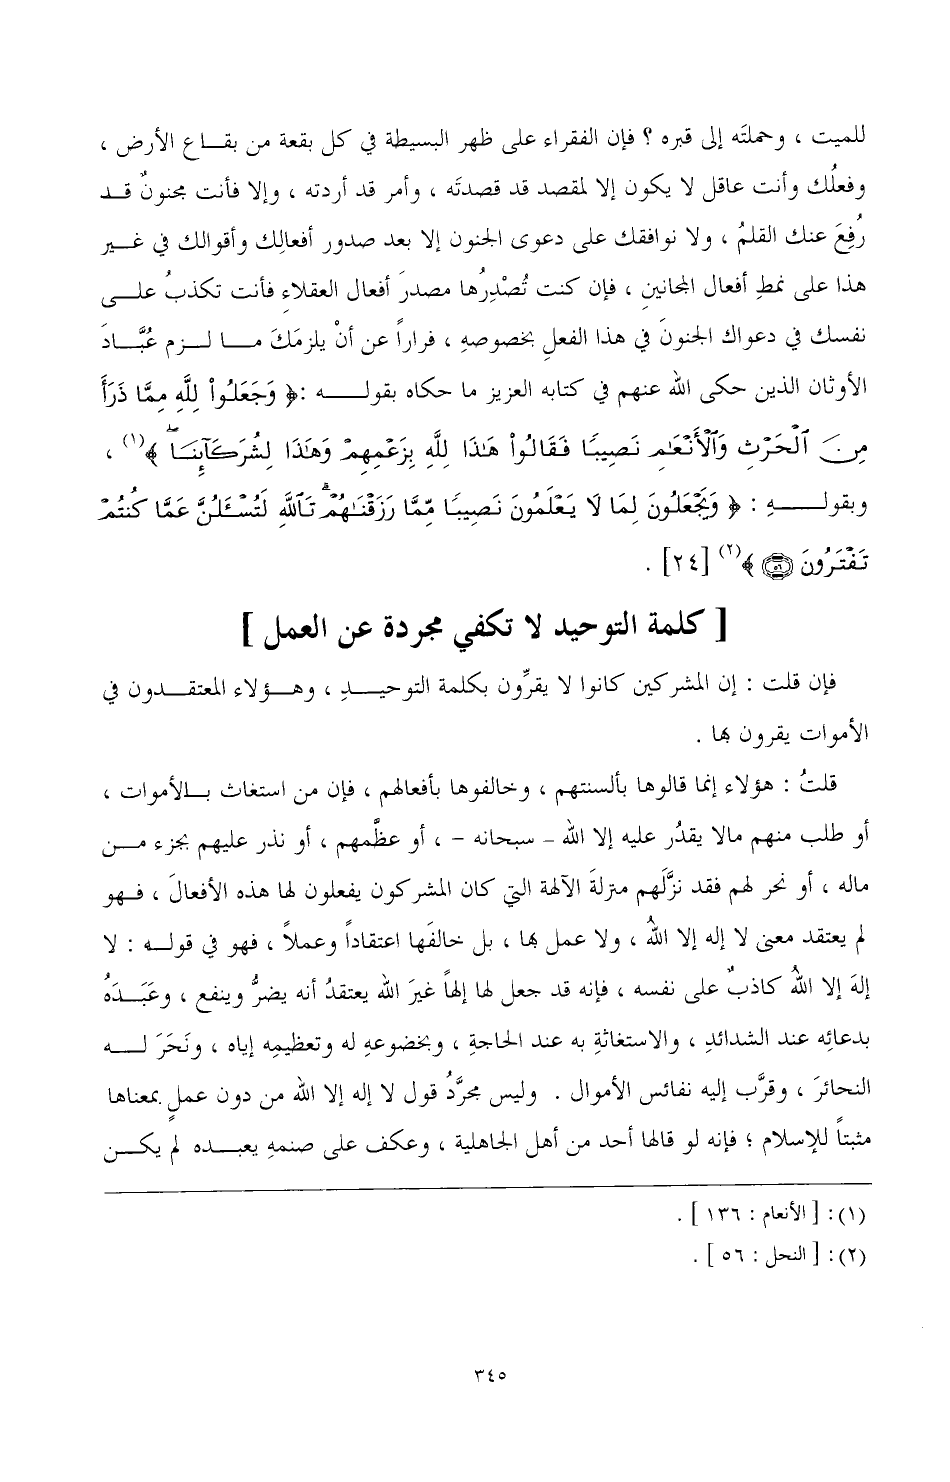 للميت ، وحملتَه إلى قبره ؟ فإن الفقراء على ظهر البسيطة في كل بقعة من بقـاع الأرض ،
وفعلُك وأنت عاقل لا يكون إلا لمقصد قد قصدتَه ، وأمر قد أردته ، وإلا فأنت مجنونٌ قـد
رُفِعَ عنك القلمُ ، ولا نوافقك على دعوى الجنون إلا بعد صدور أفعالِك وأقوالك في غـير
هذا على نمطِ أفعال المجانينِ ، فإن كنت تُصْدِرُها مصدرَ أفعال العقلاءِ فأنت تكذبُ علـى
نفسك في دعواك الجنونَ في هذا الفعلِ بخصوصهِ ، فراراً عن أنْ يلزمَكَ مـا لـزم عُبَّـادَ
الأوثان الذين حكى الله عنهم في كتابه العزيز ما حكاه بقولـه :﴿ وَجَعَلُواْ لِلَّهِ مِمَّا ذَرَأَ
مِنَ ٱلْحَرْثِ وَٱلْأَنْعَـٰمِ نَصِيبًا فَقَالُواْ هَـٰذَا لِلَّهِ بِزَعْمِهِمْ وَهَـٰذَا لِشُرَكَآئِنَا ۖ ﴾(١) ،
وبقولـهِ : ﴿ وَيَجْعَلُونَ لِمَا لَا يَعْلَمُونَ نَصِيبًا مِّمَّا رَزَقْنَـٰهُمْ ۗ تَٱللَّهِ لَتُسْـَٔلُنَّ عَمَّا كُنتُمْ
تَفْتَرُونَ ۝٥٦ ﴾(٢) [٢٤] .
[ كلمة التوحيد لا تكفي مجردة عن العمل ]
فإن قلت : إن المشركين كانوا لا يقرِّون بكلمة التوحيـدِ ، وهـؤلاء المعتقـدون في
الأموات يقرون بها .
قلتُ : هؤلاء إنما قالوها بألسنتهم ، وخالفوها بأفعالهم ، فإن من استغاث بـالأموات ،
أو طلب منهم مالا يقدُر عليه إلا الله - سبحانه - ، أو عظَّمهم ، أو نذر عليهم بجزء مـن
ماله ، أو نحر لهم فقد نزَّلَهم منزلةَ الآلهة التي كان المشركون يفعلون لها هذه الأفعالَ ، فـهو
لم يعتقد معنى لا إله إلا اللهُ ، ولا عمل بها ، بل خالفَها اعتقاداً وعملاً ، فهو في قولـه : لا
إلهَ إلا اللهُ كاذبٌ على نفسه ، فإنه قد جعل لها إلهاً غيرَ الله يعتقدُ أنه يضرُّ وينفع ، وعَبَـدَهُ
بدعائِه عند الشدائدِ ، والاستغاثةِ به عند الحاجةِ ، وبخضوعهِ له وتعظيمِه إياه ، ونَحَرَ لـه
النحائرَ ، وقرَّب إليه نفائس الأموال . وليس مجرَّدُ قول لا إله إلا الله من دون عملٍ بمعناها
مثبتاً للإسلام ؛ فإنه لو قالها أحد من أهل الجاهلية ، وعكف على صنمهِ يعبـده لم يكـن
(١): [ الأنعام : ١٣٦ ] .
(٢): [ النحل : ٥٦ ] .
٣٤٥